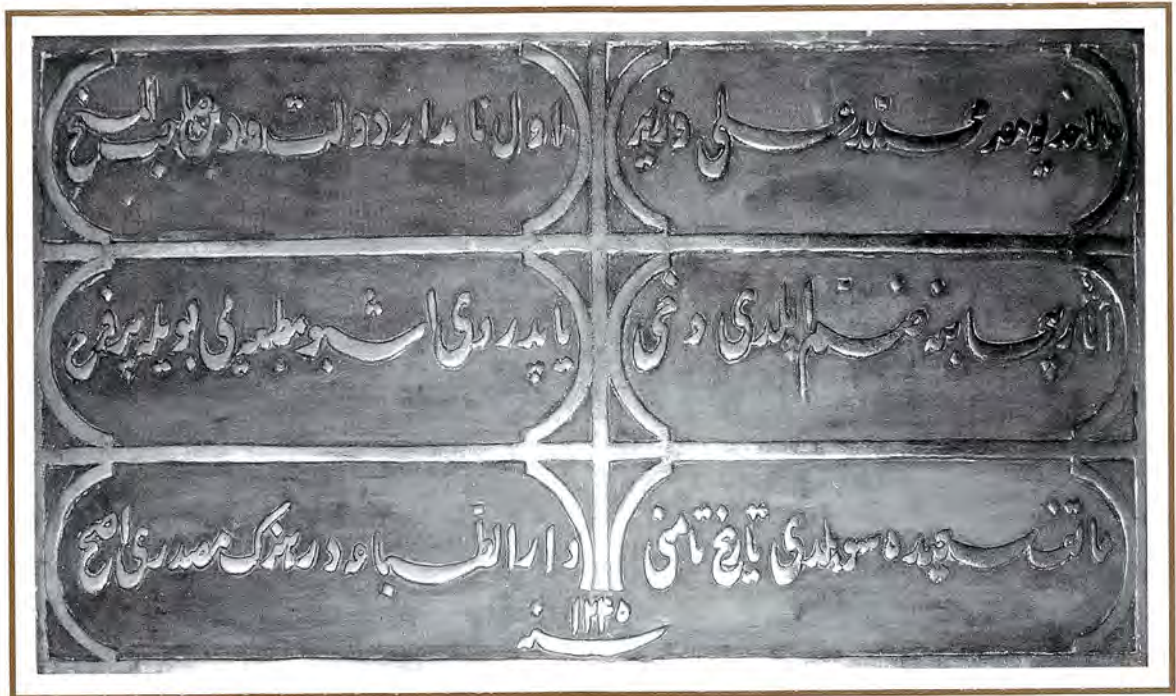 حالا خديو مصر محمد على وزير اول نامدار دولت ودين صاحب المنح
آثار بيحسابنه ضم ايلدى دخى ياپدردى اشبو مطبعه يى بويله پر فرح
هاتف سعيده سويلدى تاريخ تامنى دار الطباعه در هنرك مصدرى اصح
سنه ١٢٣٥